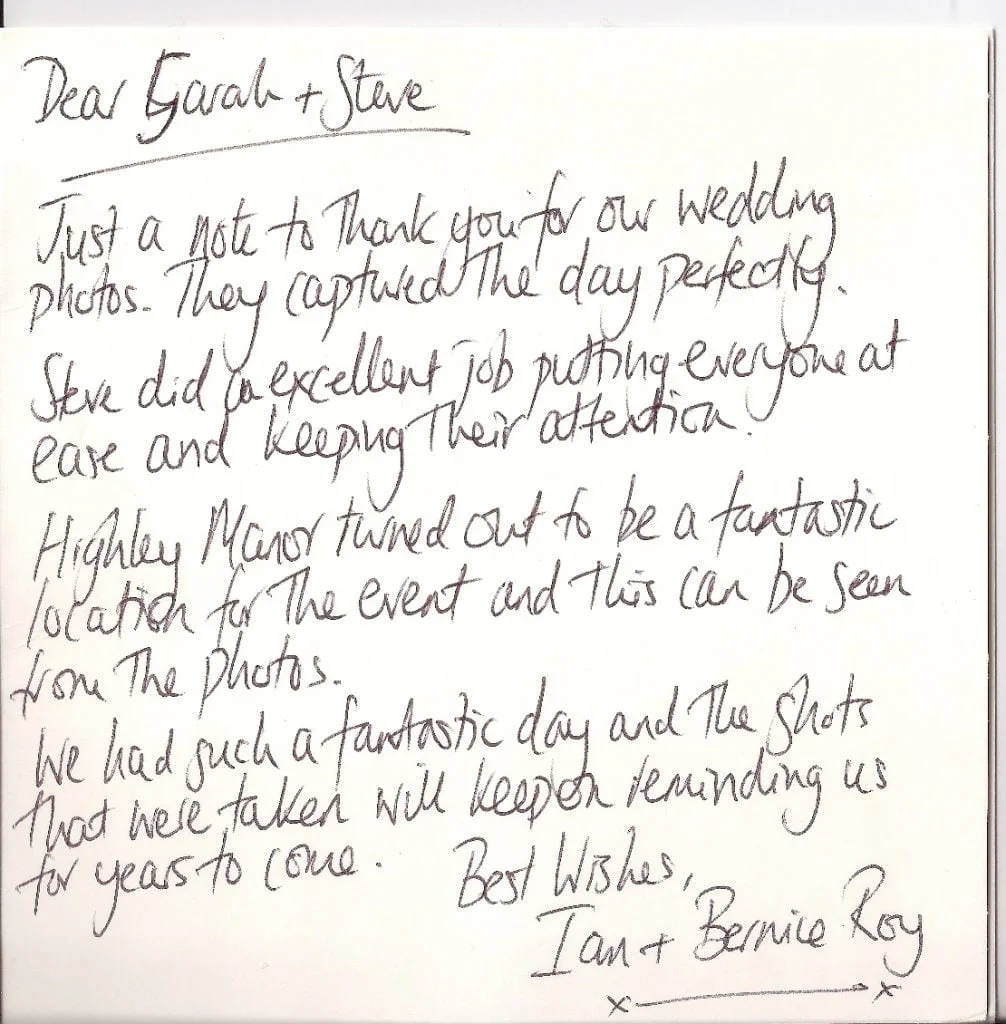 Dear Sarah + Steve
Just a note to Thank you for our wedding
photos. They captured The day perfectly.
Steve did an excellent job putting everyone at
ease and keeping Their attention.
Highley Manor turned out to be a fantastic
location for The event and this can be seen
from The photos.
We had such a fantastic day and The shots
that were taken will keep on reminding us
for years to come.
Best Wishes,
Ian + Bernice Roy
x x